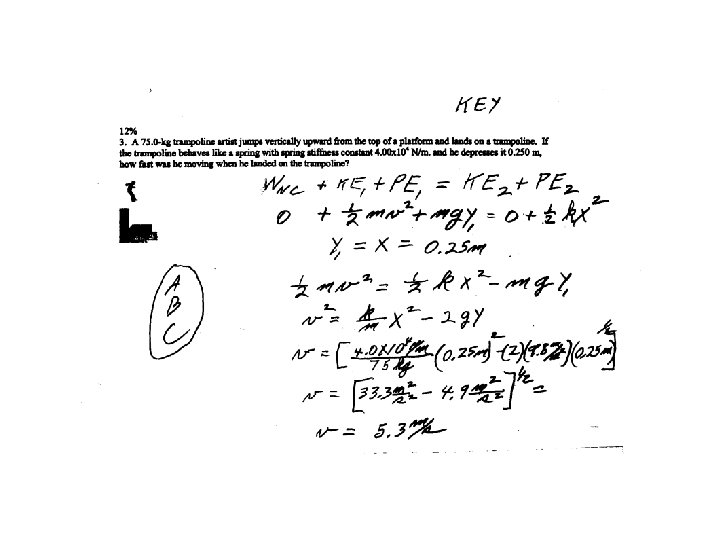 KEY
12%
3. A 75.0-kg trampoline artist jumps vertically upward from the top of a platform and lands on a trampoline. If
the trampoline behaves like a spring with spring stiffness constant 4.00x10⁴ N/m. and he depresses it 0.250 m,
how fast was he moving when he landed on the trampoline?
W_NC + KE₁ + PE₁ = KE₂ + PE₂
0 + ½ mv² + mgY₁ = 0 + ½ kX²
Y₁ = X = 0.25m
½ mv² = ½ kx² - mgY₁
v² = k/m X² - 2gY
v = [4.0X10⁴ N/m / 75 kg (0.25m)² - (2)(9.8 m/s²)(0.25m)]^½
v = [33.3 m²/s² - 4.9 m²/s²]^½ =
v = 5.3 m/s
A
B
C